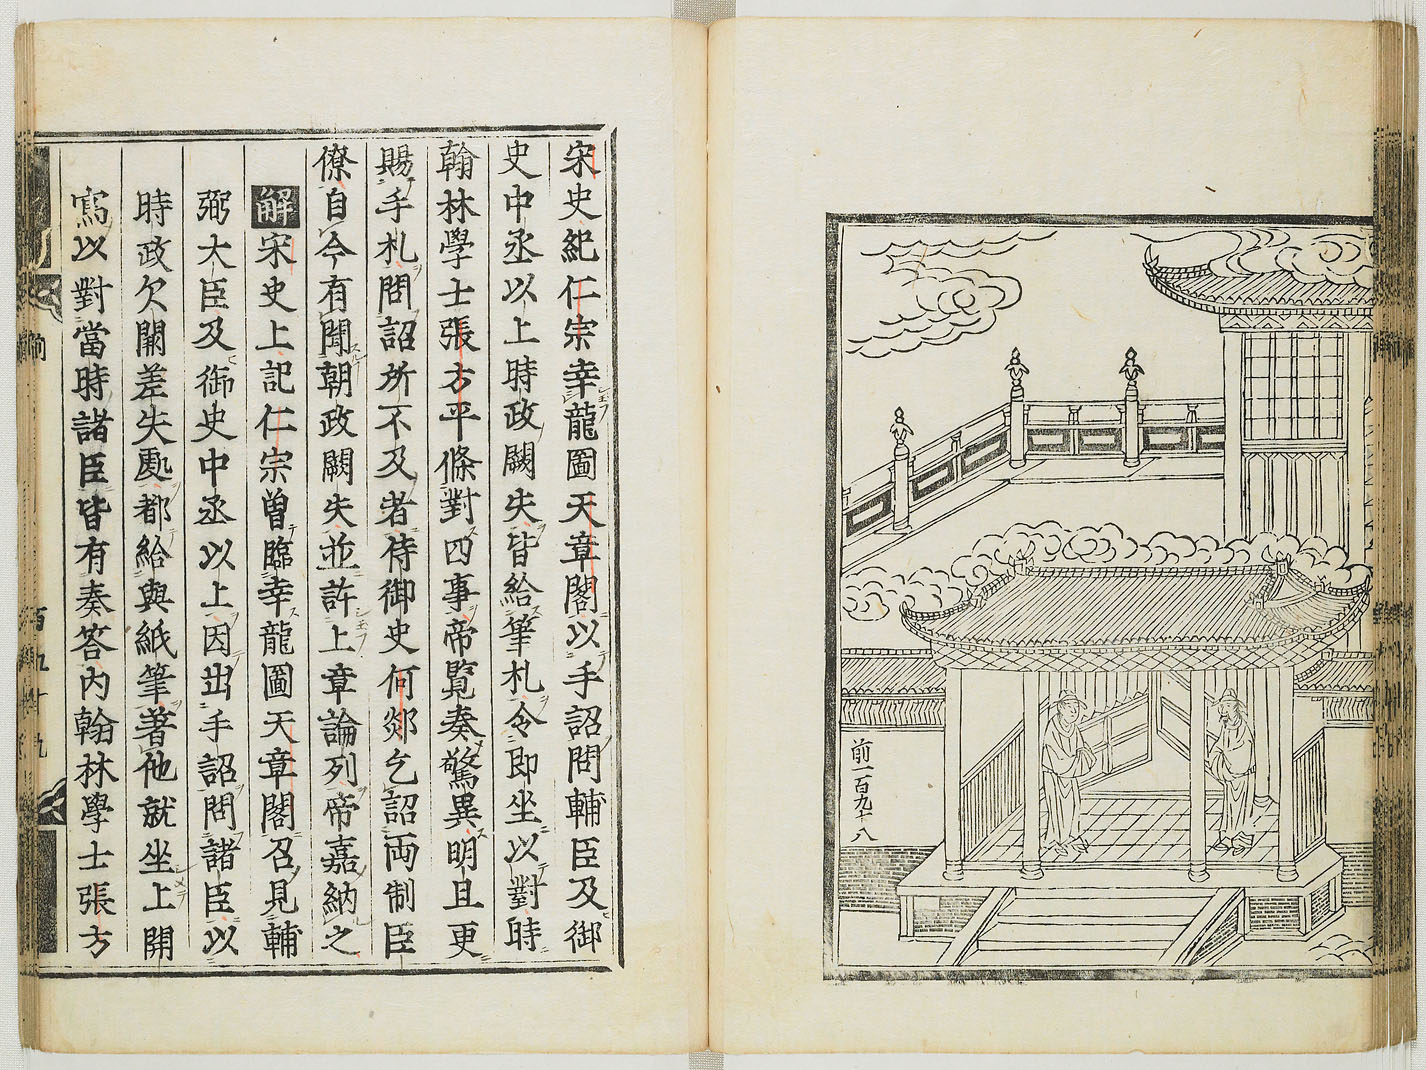 前一百九十八
宋史紀仁宗幸龍圖天章閣以手詔問輔臣及御
史中丞以上時政闕失皆給筆札令即坐以對時
翰林學士張方平條對四事帝覽奏驚異明旦更
賜手札問詔所不及者侍御史何郯乞詔両制臣
僚自今有聞朝政闕失並許上章論列帝嘉納之
解宋史上記仁宗曾臨幸龍圖天章閣召見輔
弼大臣及御史中丞以上因出手詔問諸臣以
時政欠闕差失處都給與紙筆著他就坐上開
寫以對當時諸臣皆有奏答內翰林學士張方